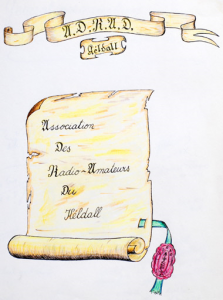 A.D.R.A.D.
Heldall
Association
Des
Radio-Amateurs
Du
Heldall